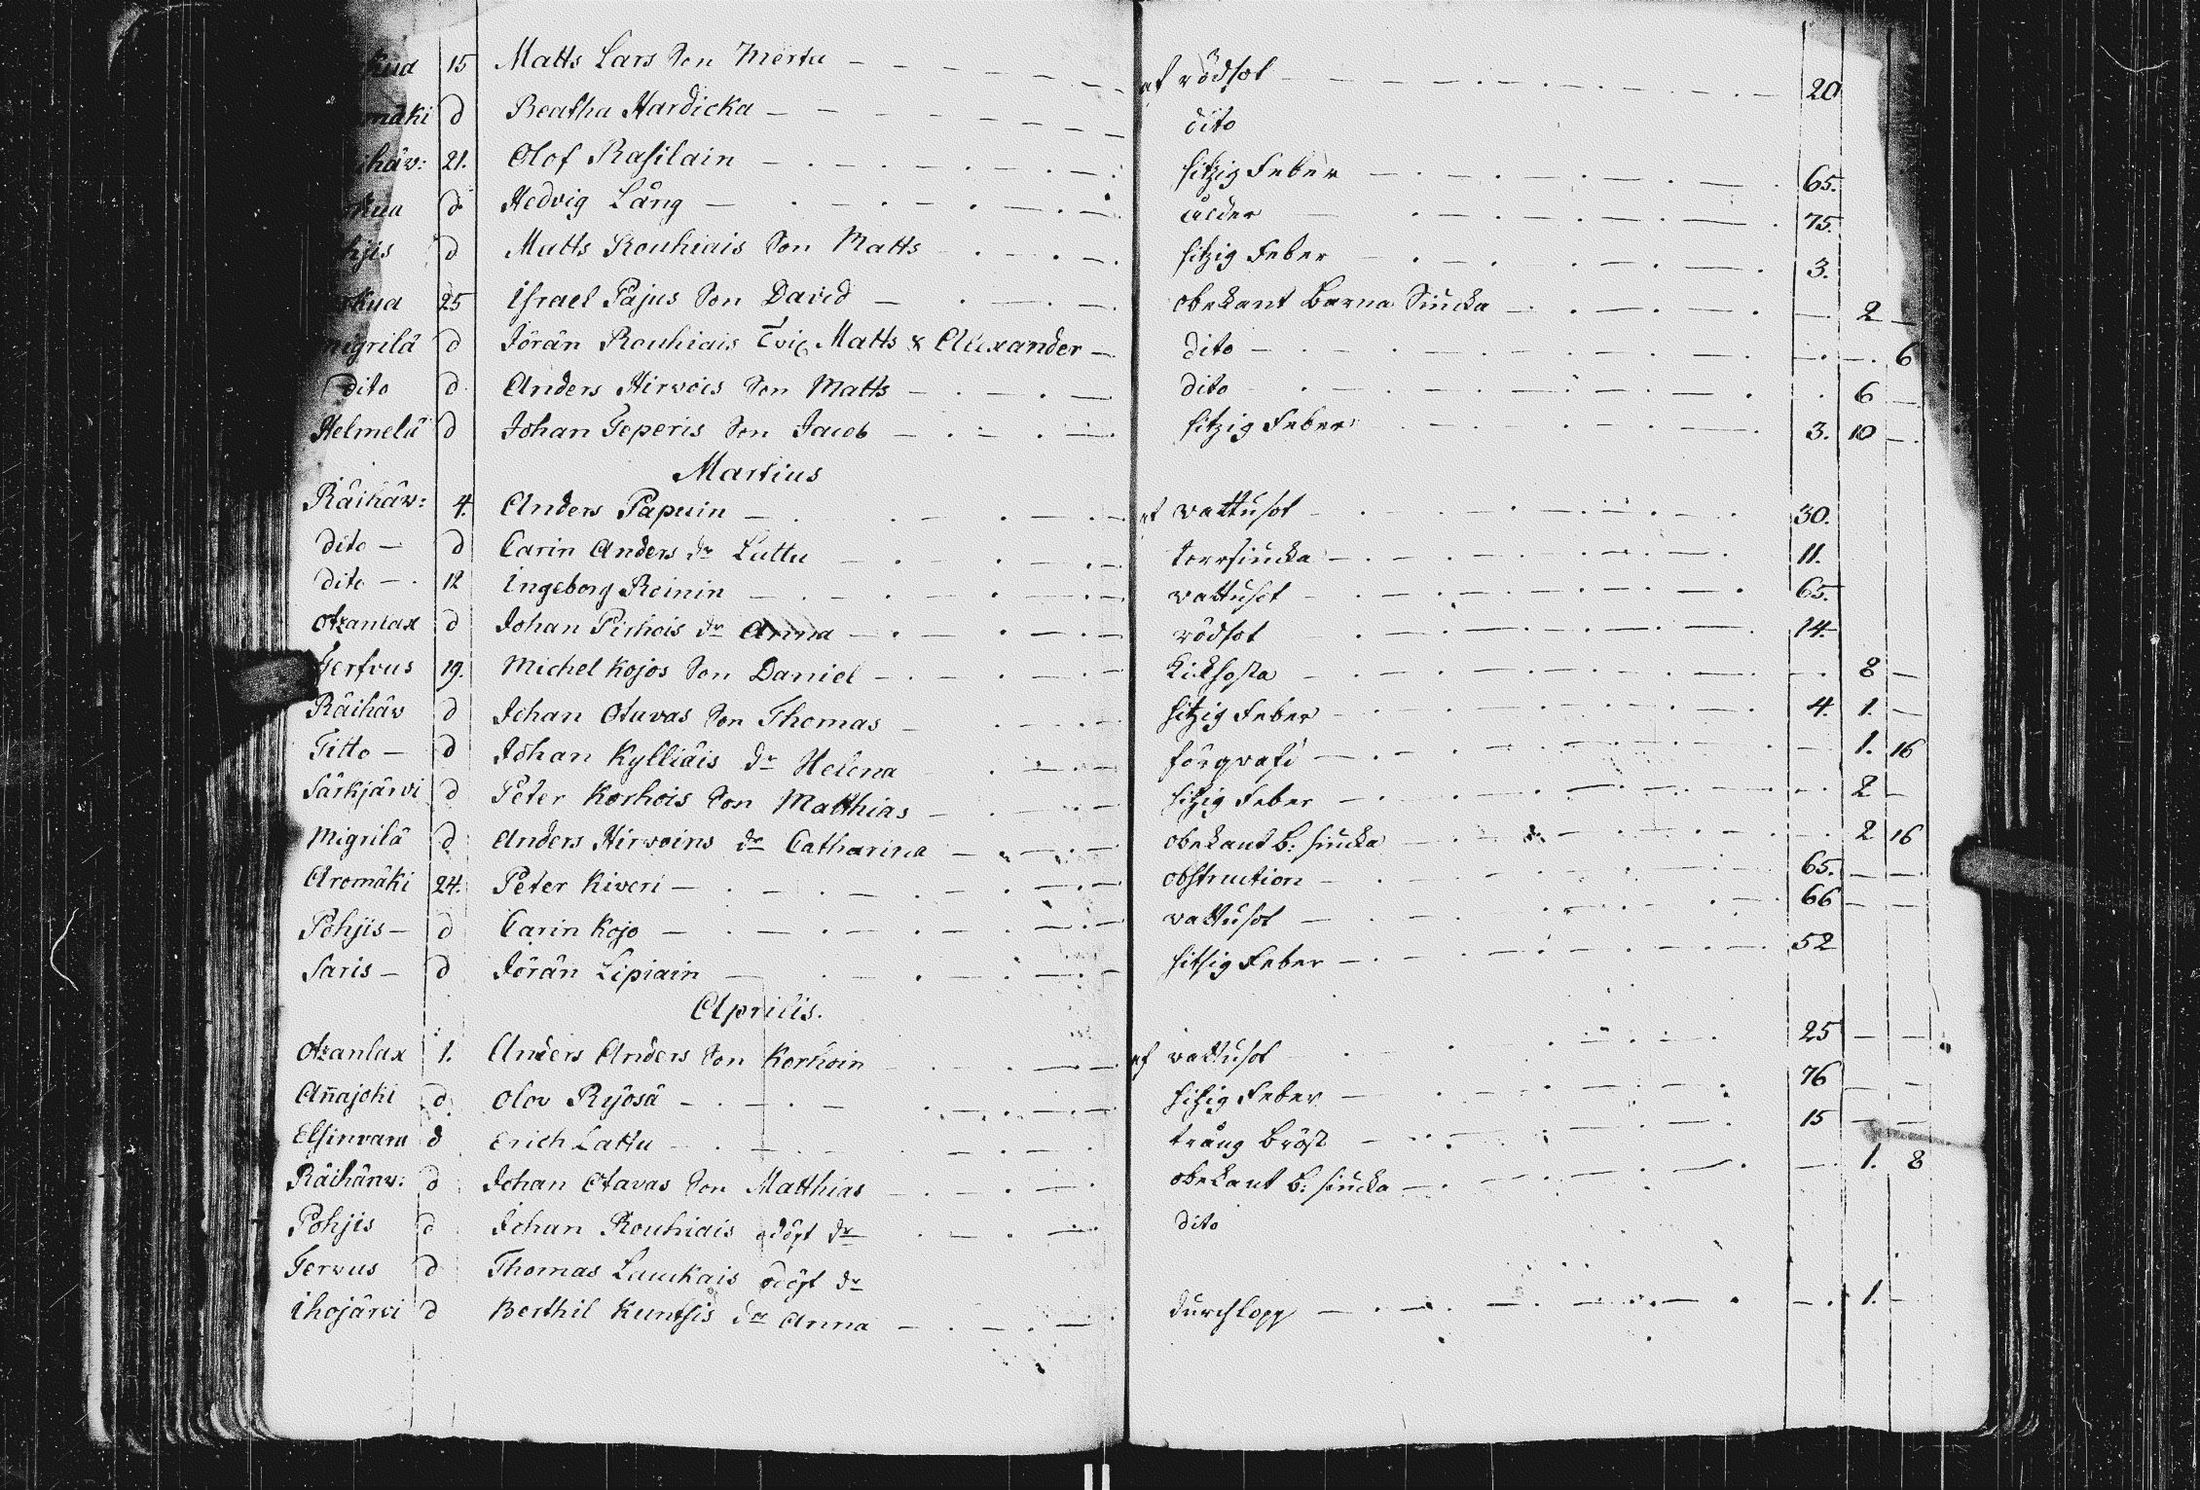 15 Matts Lars Son Mertu af rödsot 20
mäki d Beatha Hardicka dito
ihäv: 21. Olof Rasilain hitzig Feber 65.
d Hedvig Lång ålder 75.
hjis d Matts Rouhiais Son Matts hitzig Feber 3.
25 Israel Pajus Son David obekant Barna Siucka 2
migrilä d Jörän Rouhiais Matts & Allexander dito 6
Dito d Anders Hirvois Son Matts dito 6
Helmelä d Johan Teperis Son Jacob hitzig Feber 3. 10
Martius
Räihäv: 4. Anders Papuin af vattusot 30.
dito d Carin Anders dr Luttu torrsiucka 11.
dito 12 Ingeborg Reinin vattusot 65.
Otzanlax d Johan Pirhois dr Anna rödsot 14.
Jerfvus 19. Michel Kojos Son Daniel kickhosta 8
Räihäv d Johan Otavas Son Thomas hitzig Feber 4. 1.
Titto d Johan Kylliäis dr Helena förqvafd 1. 16
Särkjärvi d Peter Korhois Son Matthias hitzig Feber 2
Migrilä d Anders Hirvoins dr Catharina obekant B: siucka 2 16
Aromäki 24. Peter Kiveri obstruction 65.
Pohjis d Carin Kojo vattusot 66
Saris d Jörän Lipiain hitsig Feber 52
Aprilis.
Otzanlax 1. Anders Anders Son Korhoin af vattusot 25
Añajoki d Olov Ryösä hitzig Feber 76
Elsinvara d Erich Lattu trång Bröst 15
Räihänv: d Johan Otavas Son Matthias obekant B: siucka 1. 8
Pohjis d Johan Rouhiais odöpt dr dito
Jervus d Thomas Laukais odöpt dr
Ihojärvi d Berthil Kuntsis dr Anna durchlopp 1.